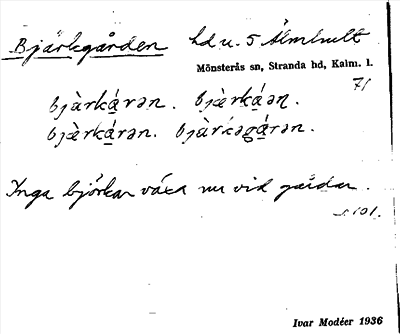 Bjärkgården hd u. 5 Älmhult
Mönsterås sn, Stranda hd, Kalm. l.
71
bjàrká̱rən. bjæ̀rká̱ən.
bjæ̀rká̱rən. bjàrkəgá̱rən.
Inga björkar växa nu vid gården.
s. 101.
Ivar Modéer 1936